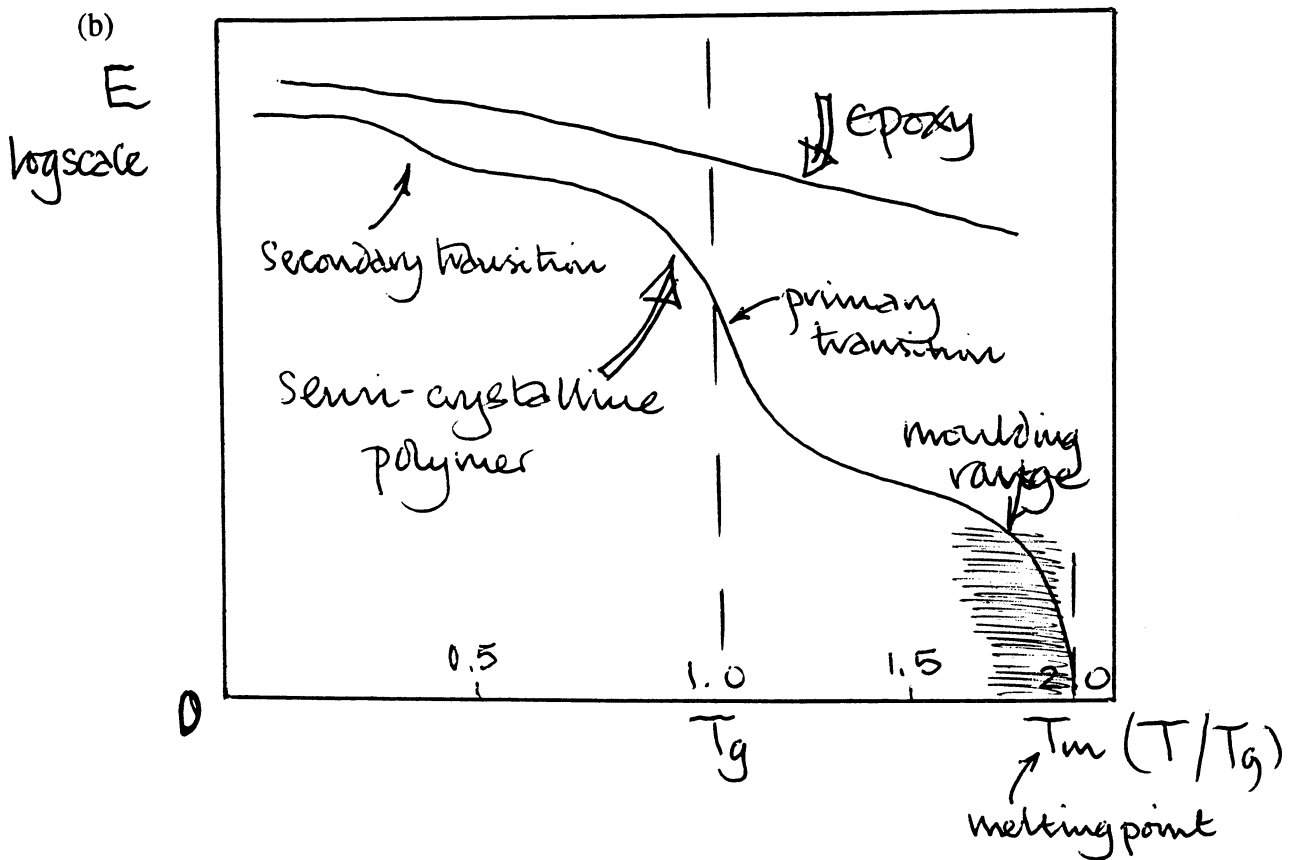 (b)
E
logscale
Epoxy
secondary transition
primary
transition
Semi-crystalline
polymer
moulding
range
0.5
1.0
1.5
2.0
0
Tg
Tm (T/Tg)
melting point